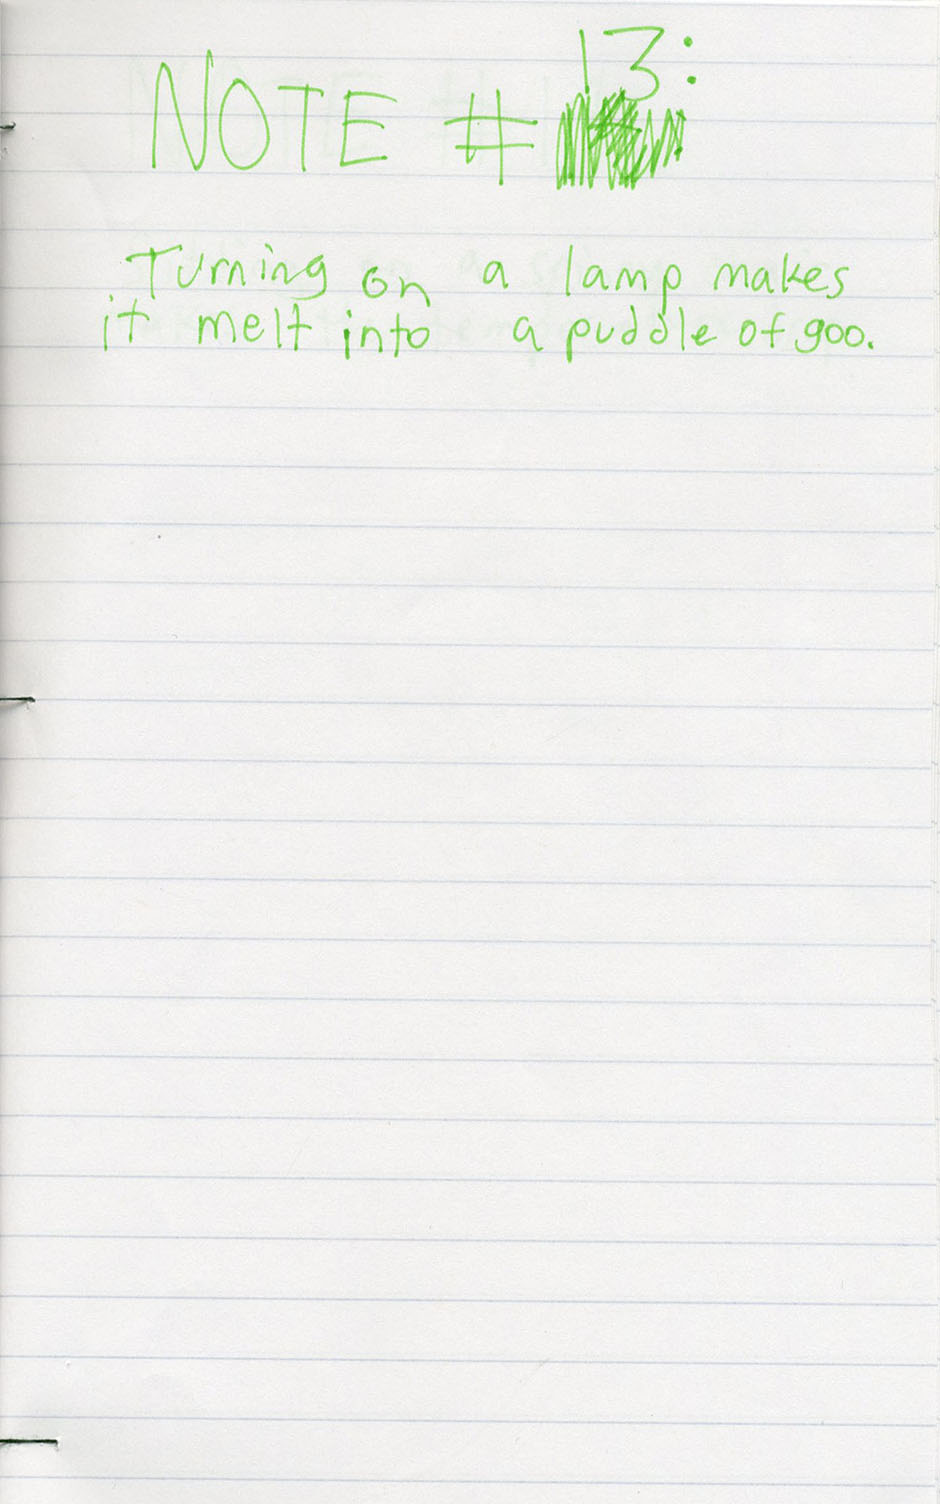 NOTE # 13:
Turning on a lamp makes
it melt into a puddle of goo.